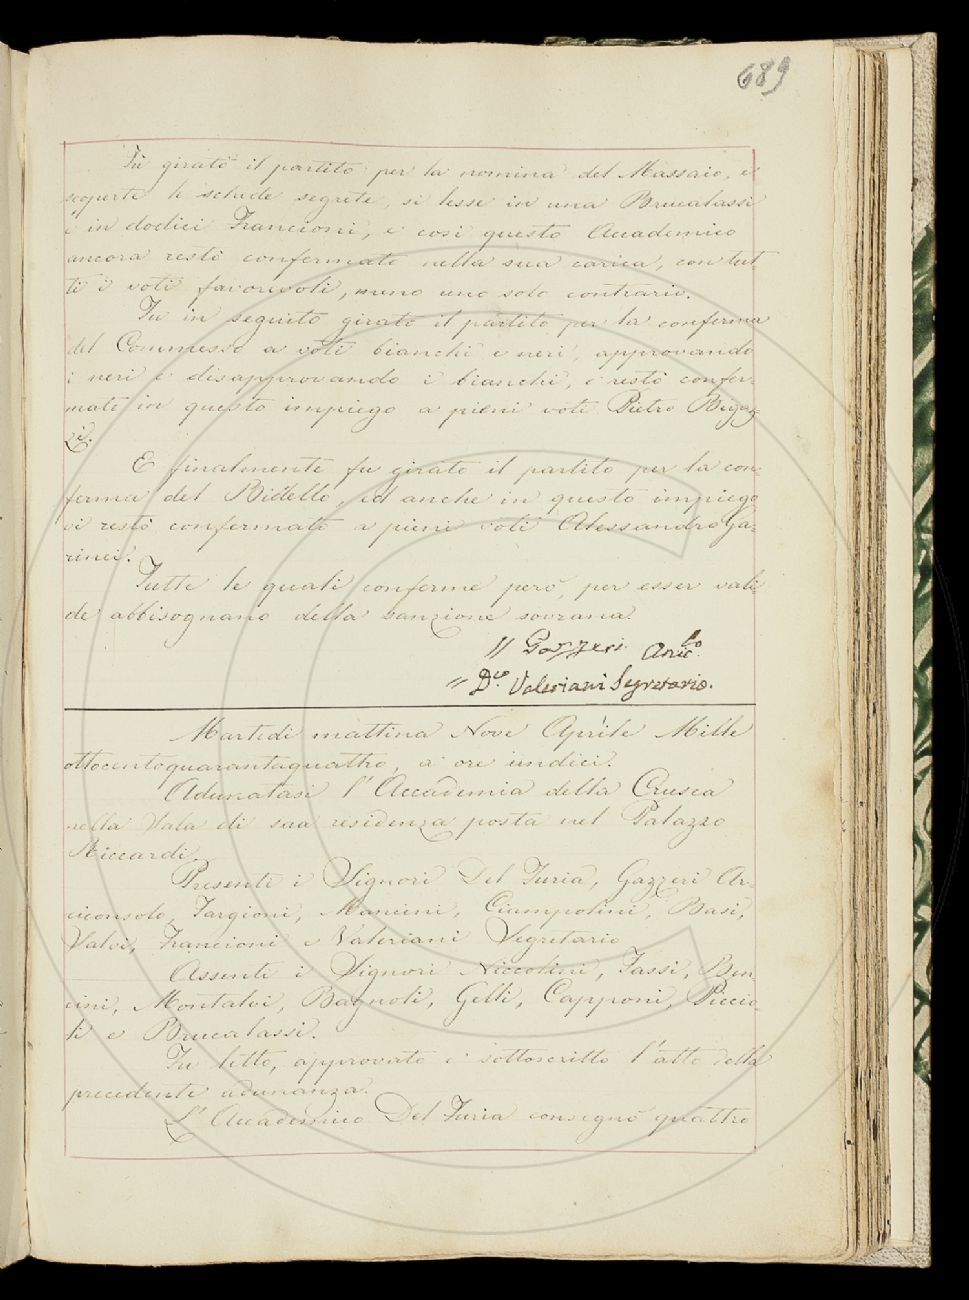 689
Fu girato il partito per la nomina del Massaio, e
scoperte le schede segrete, si lesse in una Brucalassi
e in dodici Francioni, e così questo Accademico
ancora restò confermato nella sua carica, con tut-
ti i voti favorevoli, meno uno solo contrario.
Fu in seguito girato il partito per la conferma
del Commesso a voti bianchi e neri, approvando
i neri e disapprovando i bianchi, e restò confer-
mato in questo impiego a pieni voti Pietro Bigaz-
zi.
E finalmente fu girato il partito per la con-
ferma del Bidello, ed anche in questo impiego
vi restò confermato a pieni voti Alessandro Ga-
rinei.
Tutte le quali conferme però, per esser vali-
de abbisognano della sanzione sovrana.
// Gazzeri Arcic.lo
// D.co Valeriani Segretario.
Martedì mattina Nove Aprile Mille
ottocentoquarantaquattro, a ore undici.
Adunatasi l'Accademia della Crusca
nella Sala di sua residenza posta nel Palazzo
Riccardi.
Presenti i Signori Del Furia, Gazzeri Ar-
ciconsolo, Targioni, Mancini, Ciampolini, Basi,
Salvi, Francioni e Valeriani Segretario
Assenti i Signori Niccolini, Tassi, Ben
cini, Montalvi, Bagnoli, Gelli, Capponi, Piccio-
li e Brucalassi.
Fu letto, approvato e sottoscritto l'atto della
precedente adunanza.
L'Accademico Del Furia consegnò quattro